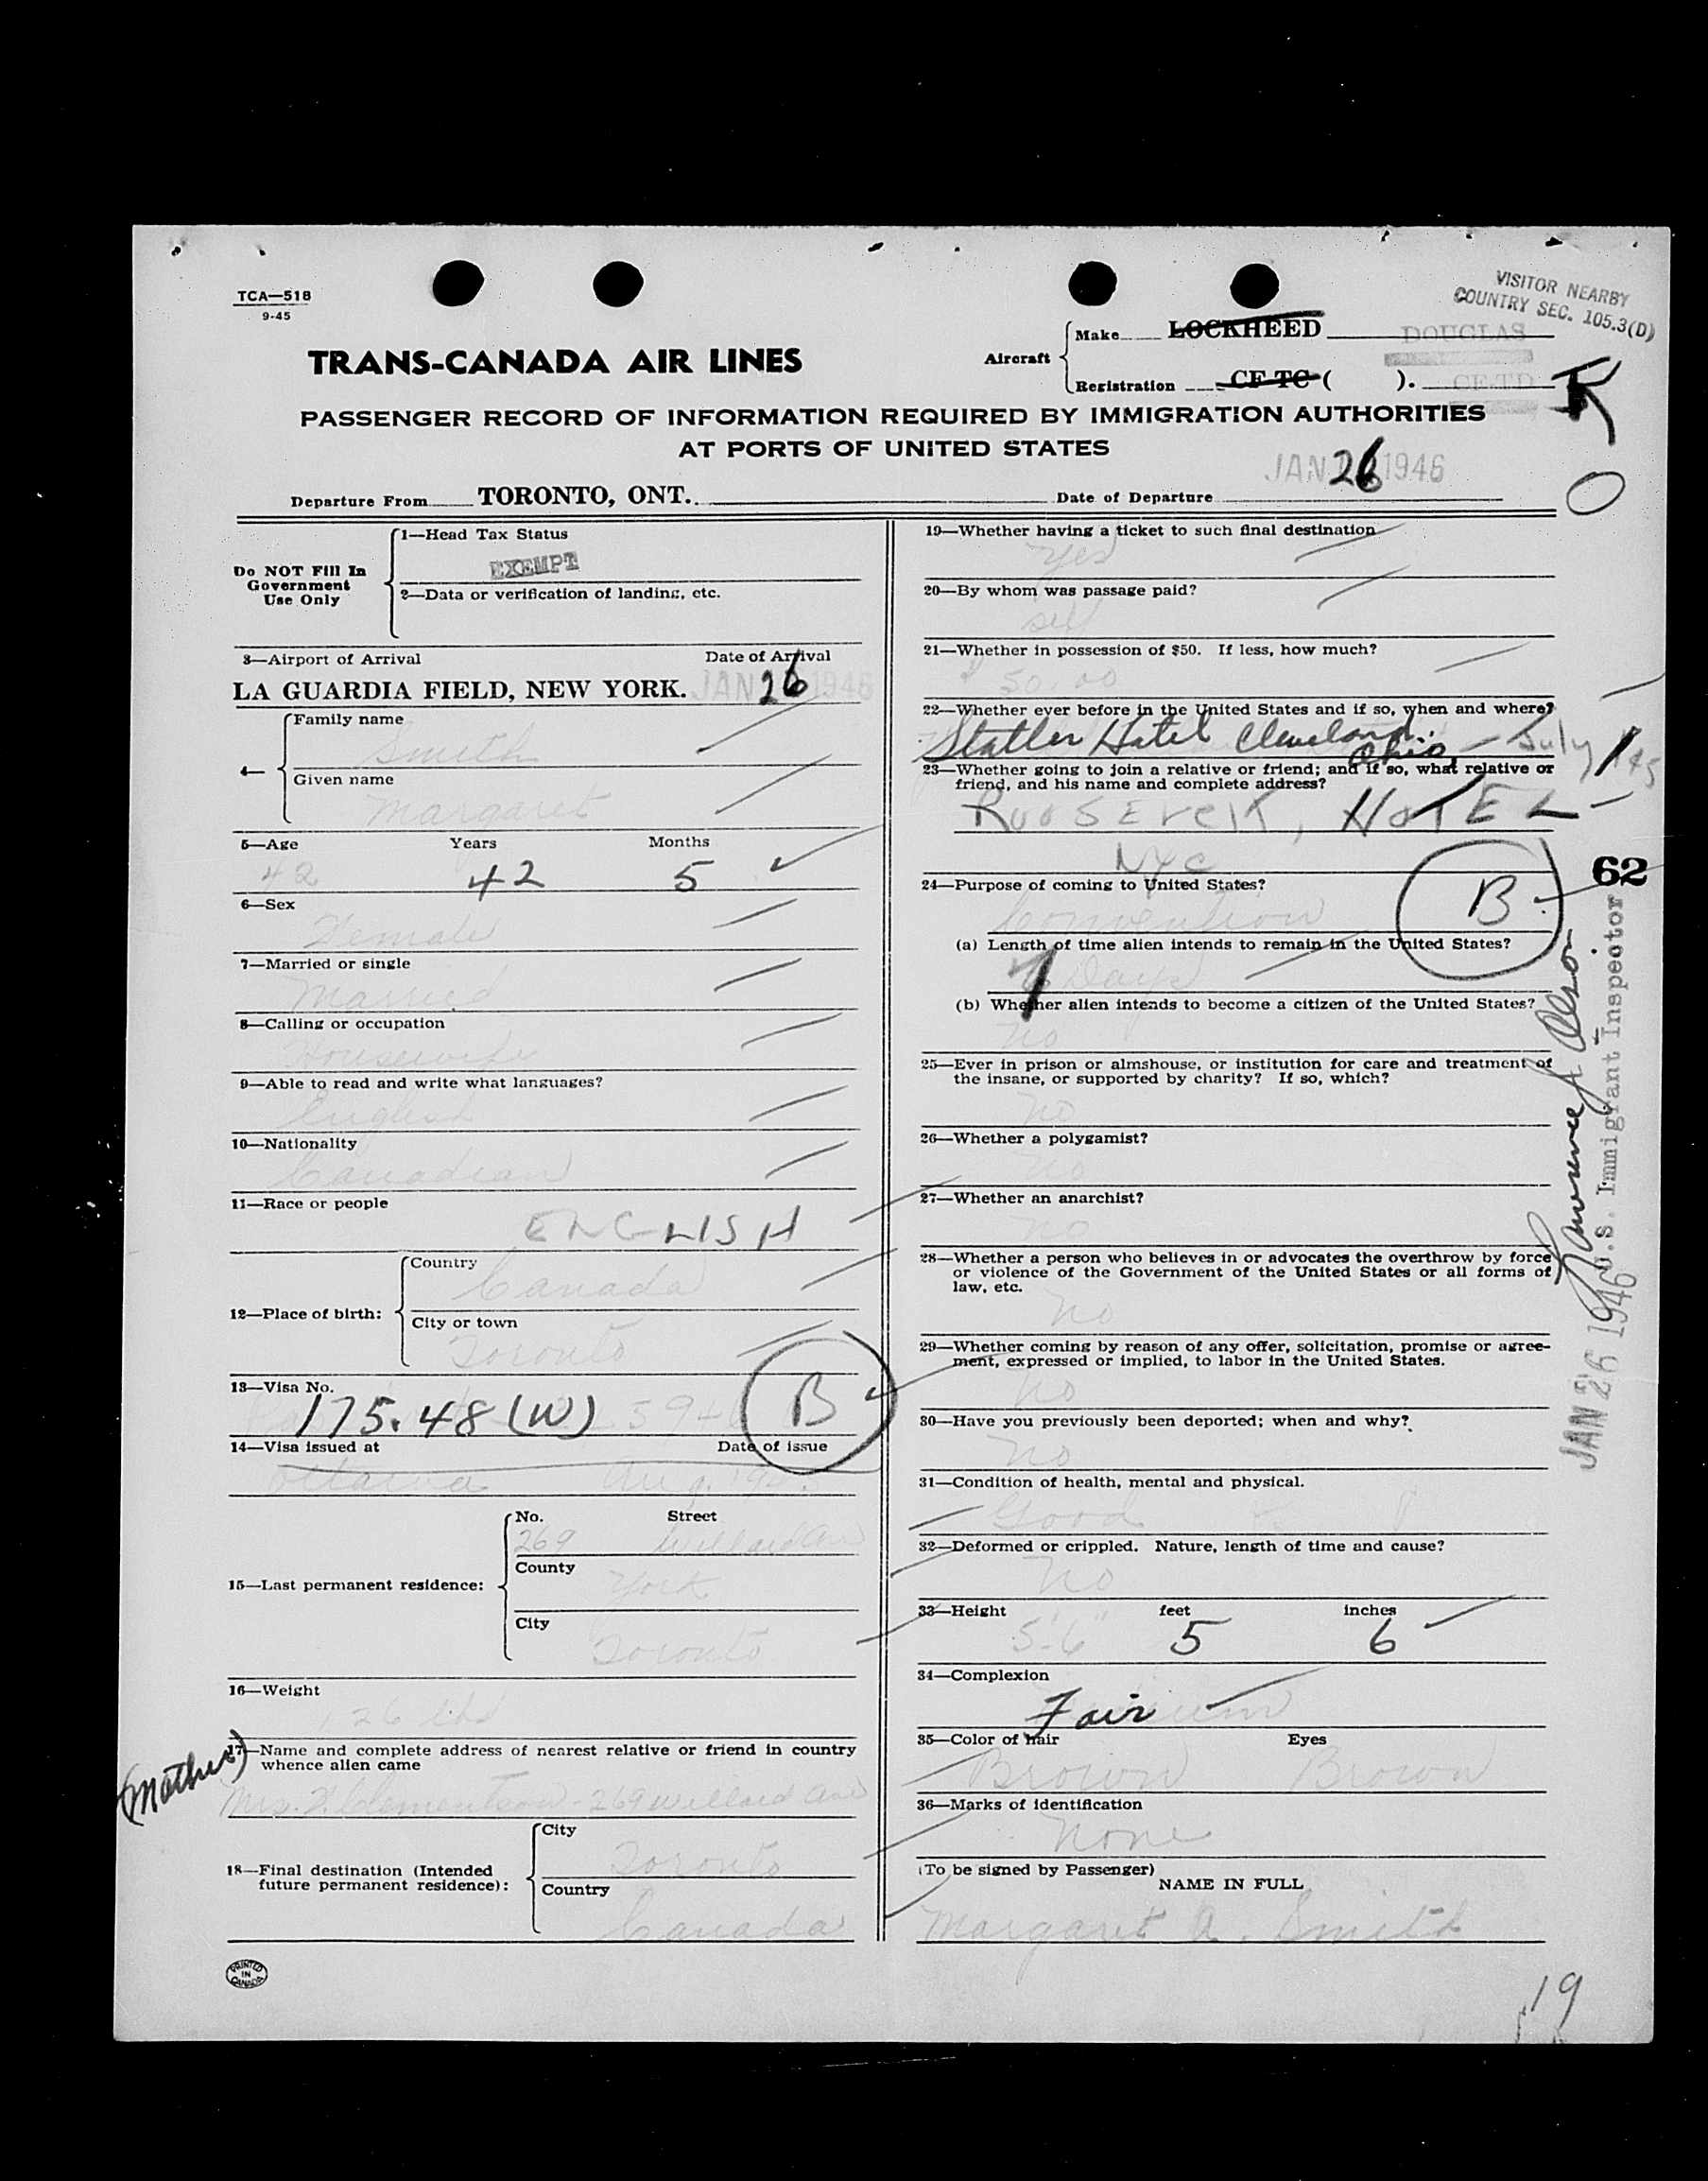 TCA—518
9-45
VISITOR NEARBY
COUNTRY SEC. 105.3(D)
TRANS-CANADA AIR LINES
Aircraft
Make LOCKHEED DOUGLAS
Registration CF-TC ( ). CF-TD
PASSENGER RECORD OF INFORMATION REQUIRED BY IMMIGRATION AUTHORITIES
AT PORTS OF UNITED STATES
Departure From TORONTO, ONT. Date of Departure JAN 26 1946
Do NOT Fill In
Government
Use Only
1—Head Tax Status
EXEMPT
2—Data or verification of landing, etc.
3—Airport of Arrival Date of Arrival
LA GUARDIA FIELD, NEW YORK. JAN 26 1946
4—
Family name
Smith
Given name
Margaret
5—Age Years Months
42 42 5
6—Sex
Female
7—Married or single
Married
8—Calling or occupation
Housewife
9—Able to read and write what languages?
English
10—Nationality
Canadian
11—Race or people
ENGLISH
12—Place of birth:
Country
Canada
City or town
Toronto
13—Visa No.
175.48 (W) B
14—Visa issued at Date of issue
Ottawa Aug.
15—Last permanent residence:
No. Street
269 Willard Ave
County
York
City
Toronto
16—Weight
126 lbs
(Mother)
17—Name and complete address of nearest relative or friend in country
whence alien came
Mrs. Clementson - 269 Willard Ave
18—Final destination (Intended
future permanent residence):
City
Toronto
Country
Canada
PRINTED
IN
CANADA
19—Whether having a ticket to such final destination
Yes
20—By whom was passage paid?
self
21—Whether in possession of $50. If less, how much?
$50.00
22—Whether ever before in the United States and if so, when and where?
Statler Hotel Cleveland Ohio — July 1/45
23—Whether going to join a relative or friend; and if so, what relative or
friend, and his name and complete address?
ROOSEVELT, HOTEL
NYC
24—Purpose of coming to United States?
Convention B
(a) Length of time alien intends to remain in the United States?
7 Days
(b) Whether alien intends to become a citizen of the United States?
No
25—Ever in prison or almshouse, or institution for care and treatment of
the insane, or supported by charity? If so, which?
No
26—Whether a polygamist?
No
27—Whether an anarchist?
No
28—Whether a person who believes in or advocates the overthrow by force
or violence of the Government of the United States or all forms of
law, etc.
No
29—Whether coming by reason of any offer, solicitation, promise or agree-
ment, expressed or implied, to labor in the United States.
No
30—Have you previously been deported; when and why?
No
31—Condition of health, mental and physical.
Good
32—Deformed or crippled. Nature, length of time and cause?
No
33—Height feet inches
5'-6" 5 6
34—Complexion
Fair
35—Color of hair Eyes
Brown Brown
36—Marks of identification
None
(To be signed by Passenger)
NAME IN FULL
Margaret A. Smith
62
Lawrence A Olson
U.S. Immigrant Inspector
JAN 26 1946
19